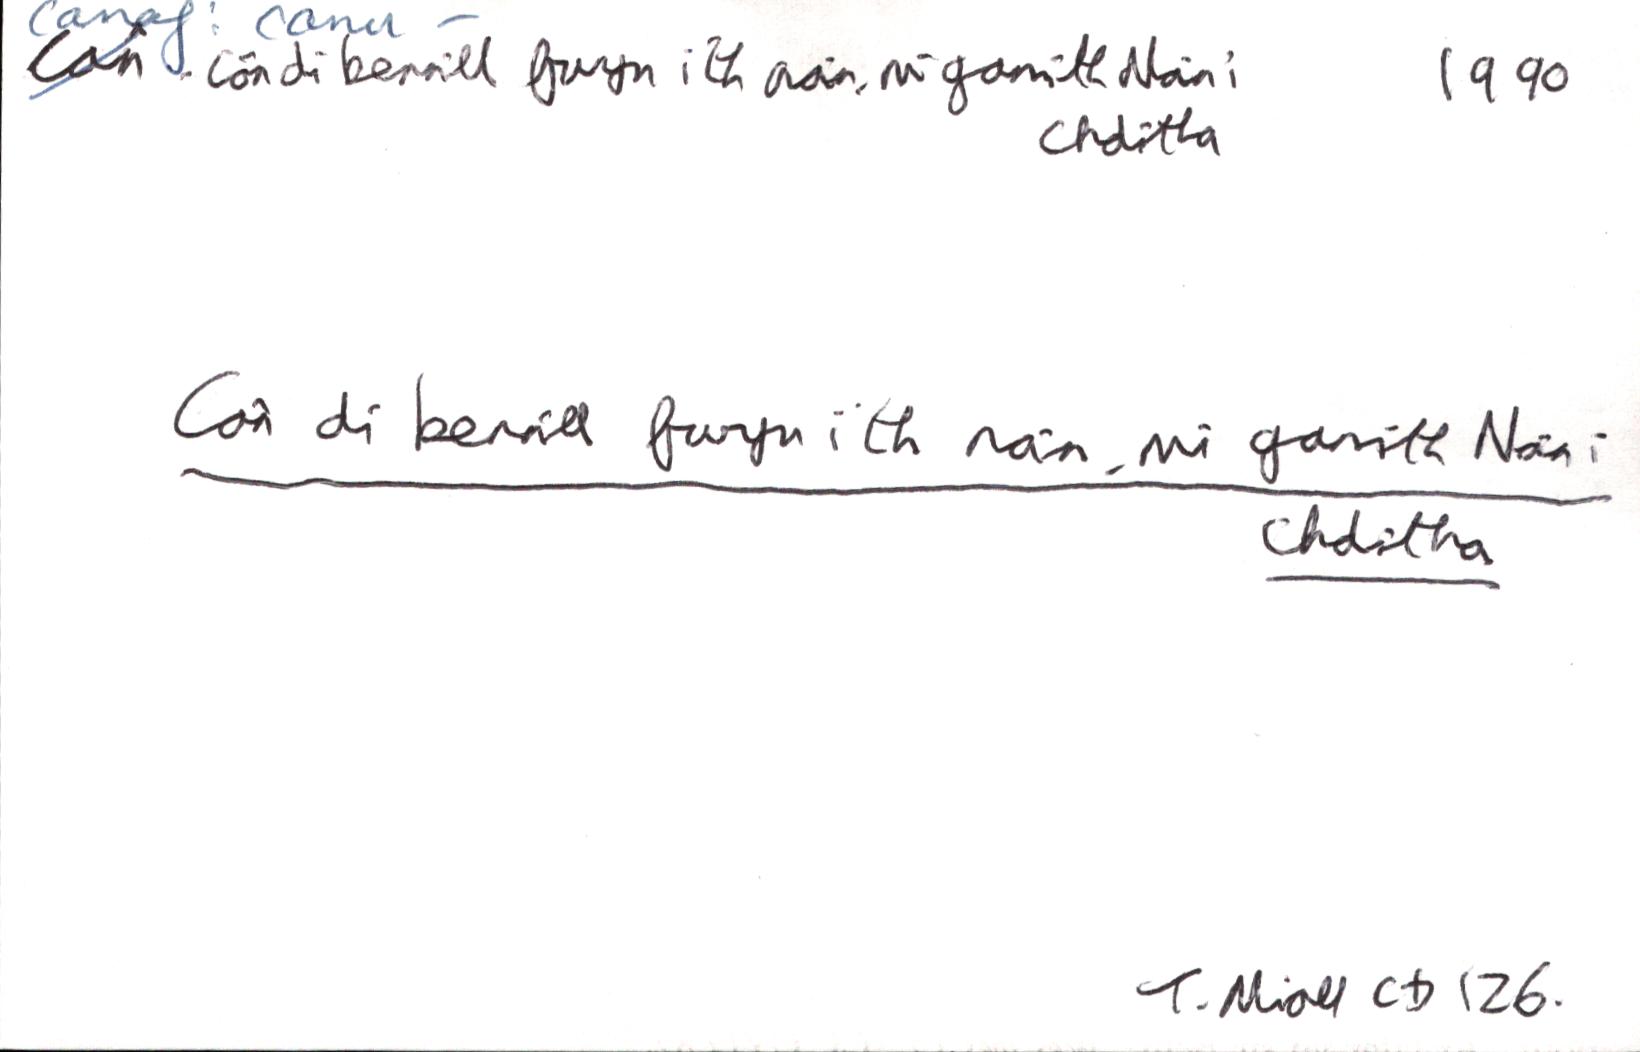 canaf: canu –
Cân. Cân di bennill fwyn i'th nain, mi ganith Nain i 1990
chditha
Cân di bennill fwyn i'th nain, mi ganith Nain i
chditha
T. Miall CD 126.